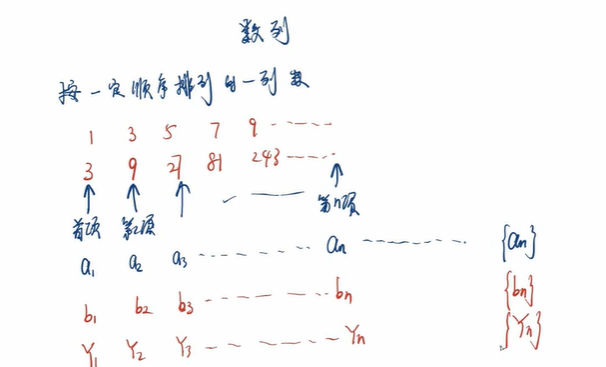 数列
按一定顺序排列的一列数
1 3 5 7 9 ------
3 9 27 81 243 -----
首项 第2项 第n项
a₁ a₂ a₃ ------ aₙ ------ {aₙ}
b₁ b₂ b₃ ------ bₙ {bₙ}
Y₁ Y₂ Y₃ ------ Yₙ {Yₙ}